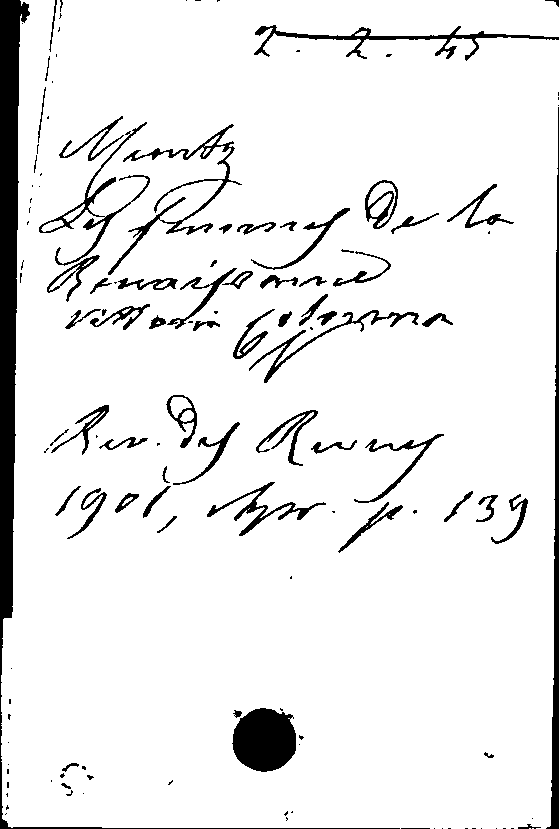 2. 2. 45
Muntz
Les femmes de la
Renaissance
Vittoria Colonna
Rev. des Revues
1901, Apr. p. 139